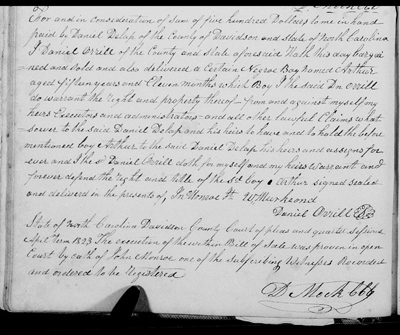 For and in consideration of Sum of five hundred Dollars to me in hand
paid by Daniel Delap of the County of Davidson and State of North Carolina
I Daniel Orrill of the County and State aforesaid Hath this day bargai
ned and Sold and also delivered a Certain Negroe Boy named Arthur
aged fifteen years and Eleven months which Boy I the said Dn. Orrill
do warrant the right and property thereof from and against myself my
heirs Executors and administrators and all other lawful Claims what
soever to the said Daniel Delap and his heirs to have and to hold the before
mentioned boy Arthur to the said Daniel Delap his heirs and assigns for
ever and I the sd Daniel Orrill doth for myself and my heirs warrant and
forever defend the right and title of the sd boy Arthur signed sealed
and delivered in the presents of,
Daniel Orrill
State of North Carolina Davidson County Court of pleas and quarter sessions
Sept Term 1833 The execution of the within Bill of Sale was proven in open
Court by oath of John Monroe one of the Subscribing Witnesses Recorded
and ordered to be Registered
D Mock Clk